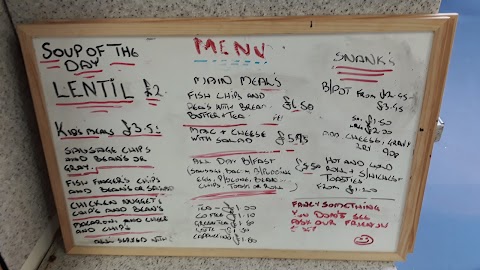 SOUP OF THE
DAY
LENTIL £2
KIDS MEALS £3.5
SAUSAGE CHIPS
AND BEANS OR
GRAVY
FISH FINGERS CHIPS
AND BEANS OR SALAD
CHICKEN NUGGET
CHIPS AND BEANS
MACARONI AND CHEESE
AND CHIPS
SERVED WITH
MENU
MAIN MEALS
FISH CHIPS AND
PEAS WITH BREAD
BUTTER + TEA
MAC + CHEESE
WITH SALAD £5.95
ALL DAY B/FAST
SAUSAGE BACON B/PUDDING
EGG, BEANS
CHIPS TOAST OR ROLL
£5.50
TEA 1.00
COFFEE 1.10
LATTE
CAPPUCCINO £1.80
SNACKS
B/POT FROM £2.45
£3.45
£1.50
£2.00
ADD CHEESE, GRAVY
90p
HOT AND COLD
ROLL
TOASTIES
FROM £1.20
FANCY SOMETHING
YOU DON'T SEE
ASK OUR FRIENDLY